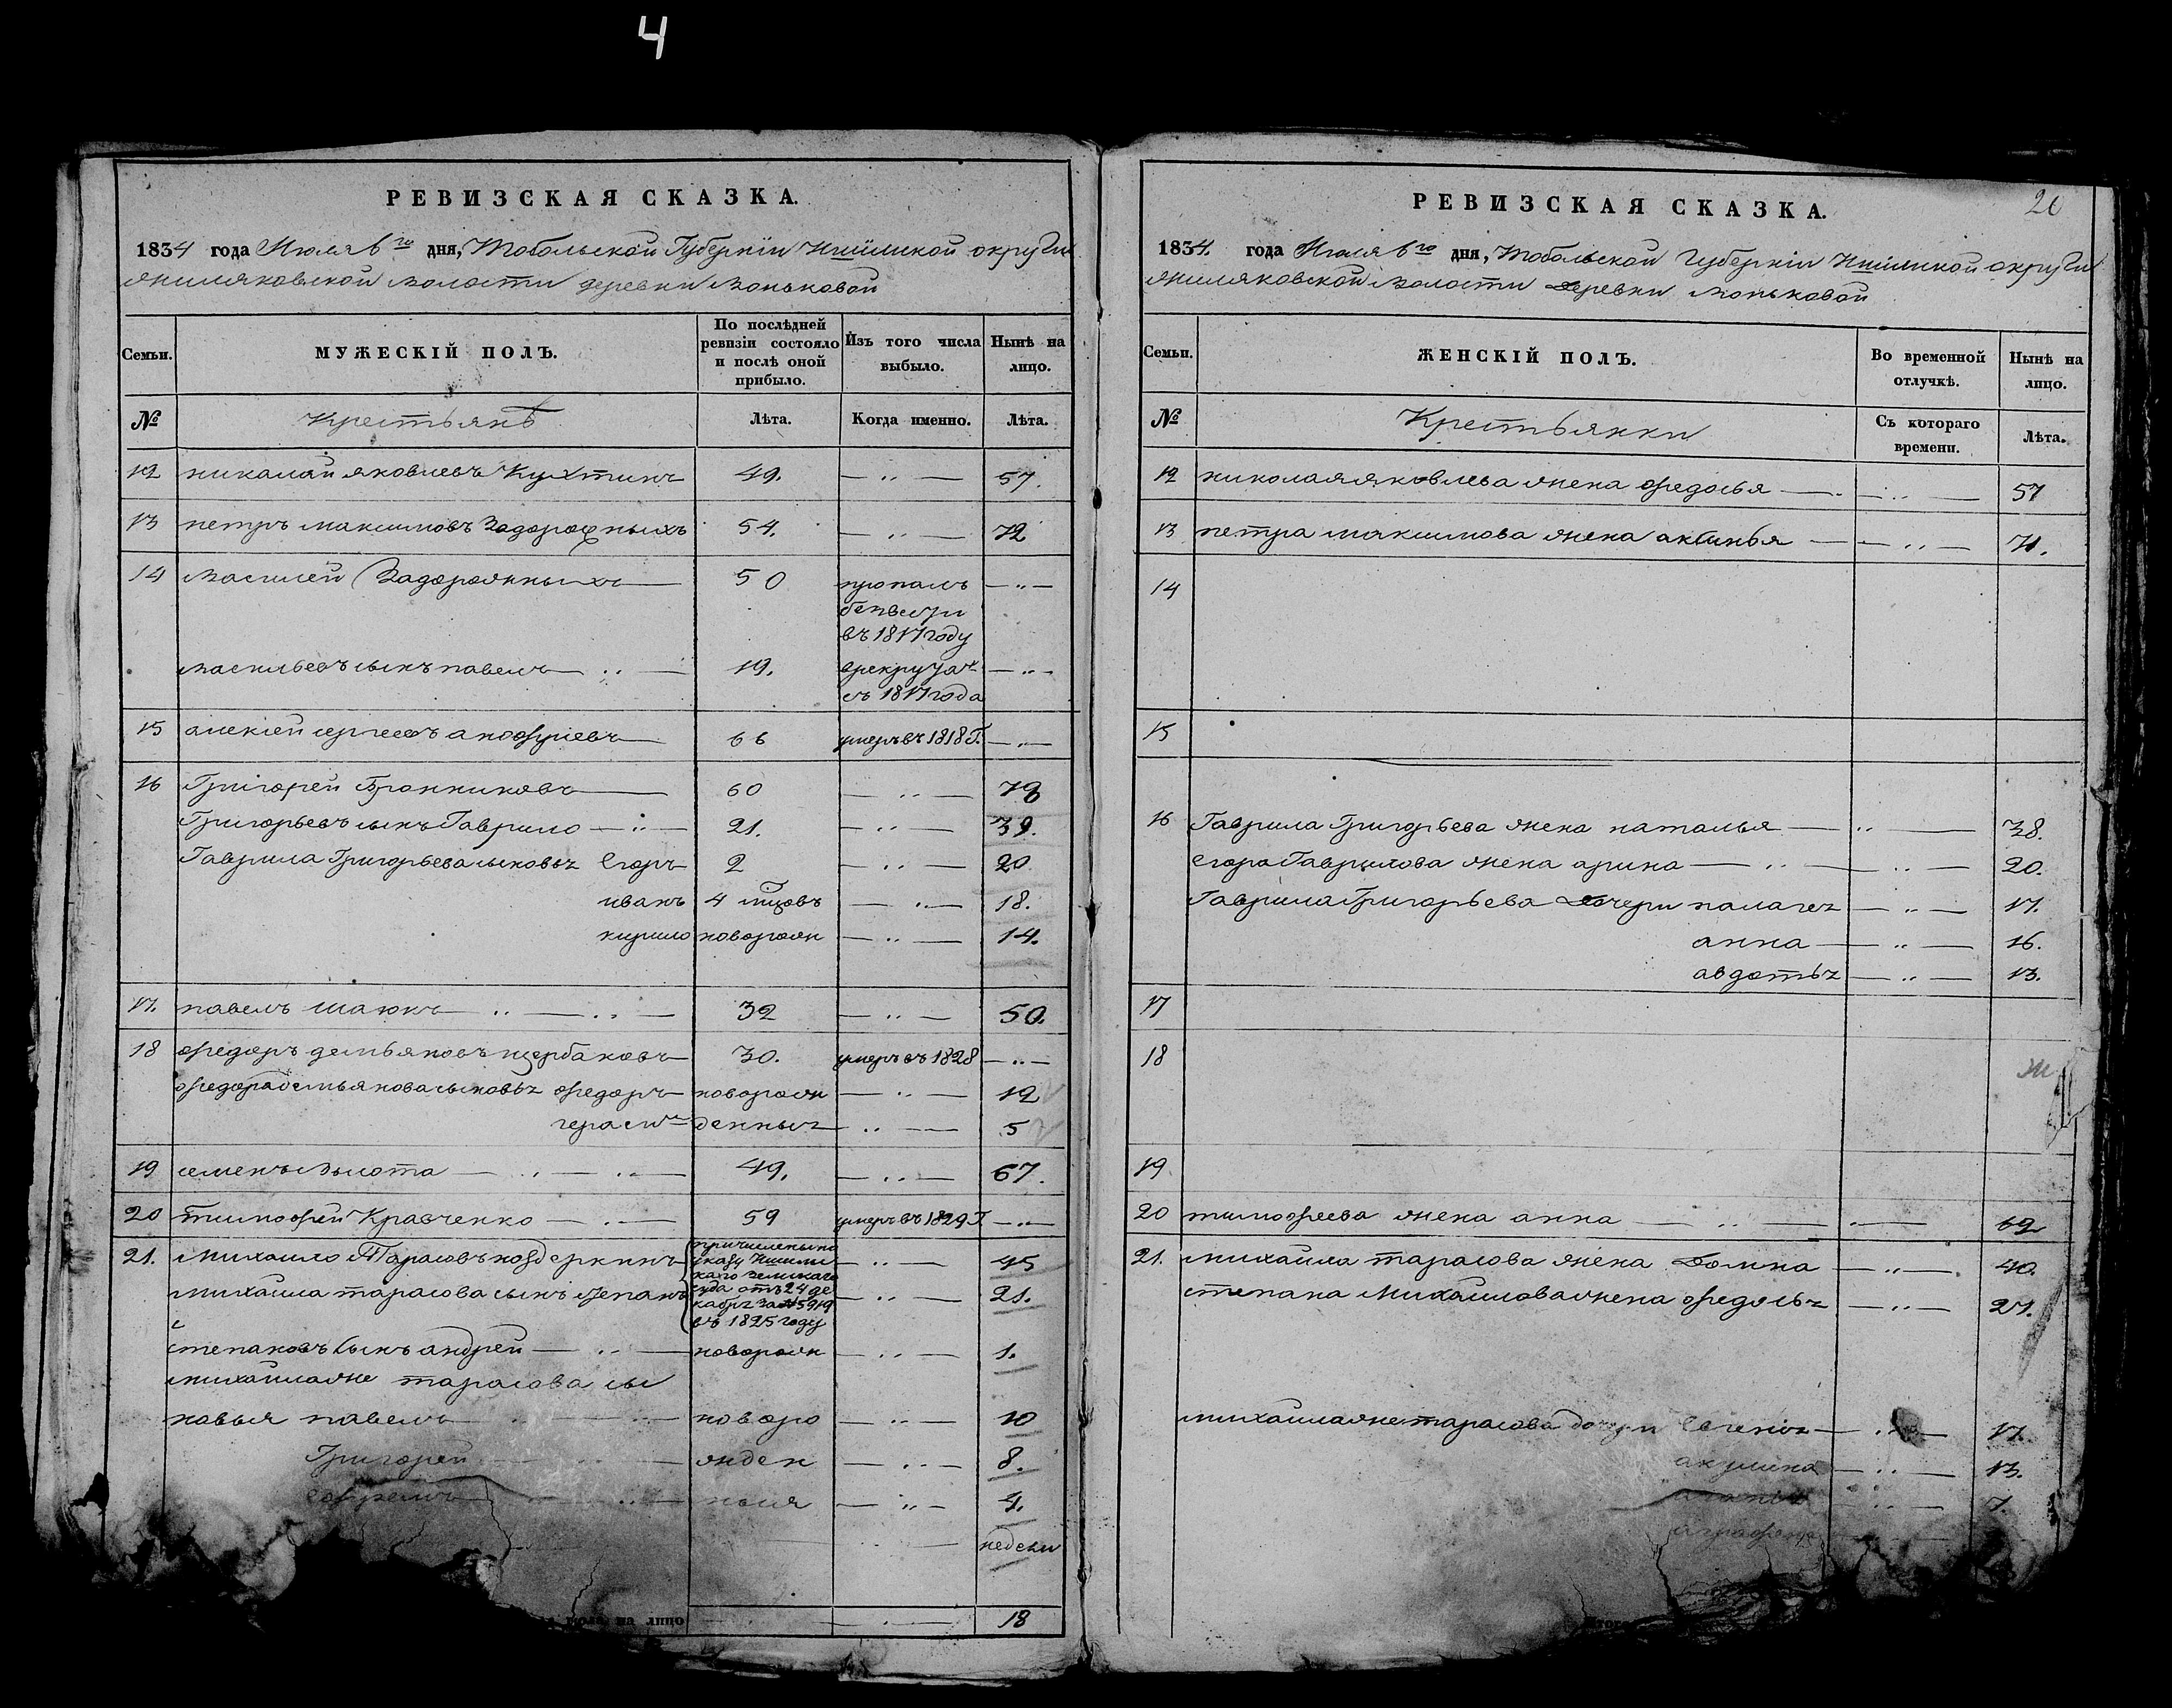 4
РЕВИЗСКАЯ СКАЗКА.
1834 года Июля 6го дня, Тобольской Губерніи Ишимской округи
Жиляковской волости деревни Воньковой
Семьи. МУЖЕСКІЙ ПОЛЪ. По послѣдней ревизіи состояло и послѣ оной прибыло. Изъ того числа выбыло. Нынѣ на лицо.
№ Крестьянѣ Лѣта. Когда именно. Лѣта.
12 никалай яковлевъ Кухтинъ 49. — " — 57.
13 петръ максимовъ Задорожныхъ 54. — " — 72
14 василей Задорожныхъ 50 пропалъ — " —
безвести
въ 1817 году
васильевъ сынъ павелъ — " — 19. врекрутах — " —
съ 1817 года
15 алексей сергеевъ аноофриевъ 66 умеръ въ 1818 г. — " —
16 Григорей Бронниковъ 60 — " — 78
Григорьевъ сынъ Гаврило — " — 21. — " — 39.
Гаврила Григорьева сыновья Егоръ 2 — " — 20
иванъ 4 мцовъ — " — 18.
кирило новорожн — " — 14.
17. павелъ шаюкъ — " — " — 32 — " — 50.
18 ѳедоръ демьяновъ щербаковъ 30. умеръ въ 1828 — " —
ѳедора демьянова сыновья ѳедоръ новорожн — " — 12
герасим денныя — " — 5
19 семенъ Вьюта — " — " — 49. — " — 67.
20 тимоѳей Кравченко — " — 59 умеръ въ 1829 г. — " —
21. Михайло Тарасовъ козеркинъ причислены по — " — 45
указу Ишимс
каго Земскаго
михайла тарасова сынъ степанъ суда отъ 24 де — " — 21.
кабря за № 5919
въ 1825 году
степановъ сынъ андрей — " — новорожн — " — 1.
михайлаже тарасова сы
новья павелъ — " — новоро — " — 10
Григорей — " — жден — " — 8.
ефремъ — " — ныя — " — 4.
недели
пола на лицо — " — 18
20
РЕВИЗСКАЯ СКАЗКА.
1834. года Июля 6го дня, Тобольской Губерніи Ишимской округи
Жиляковской волости Деревни Воньковой
Семьи. ЖЕНСКІЙ ПОЛЪ. Во временной отлучкѣ. Нынѣ на лицо.
№ Крестьянки Съ котораго времени. Лѣта.
12 николая яковлева жена ѳедосья — " — 57
13 петра максимова жена аксинья — " — 71.
14
15
16 Гаврила Григорьева жена наталья — " — 38.
егора Гаврилова жена арина — " — 20.
Гаврила Григорьева Дочери палагея — " — 17.
анна — " — 16.
авдотья — " — 13.
17
18
19
20 тимоѳеева жена анна — " — 62
21. михайла тарасова жена Домна — " — 40.
степана Михайлова жена ѳедосья — " — 21.
михайлаже тарасова дочери Евгения — " — 17.
акулина — " — 13.
агафья — " — 7.
аграфена